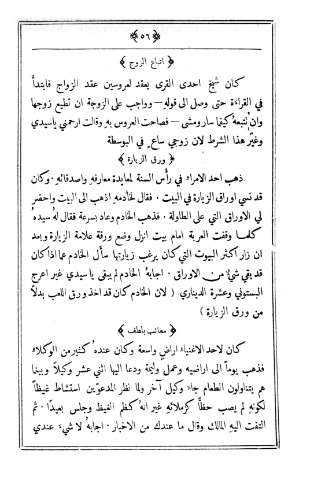 ﴿ ٥٦ ﴾
﴿ اتباع الزوج ﴾
كان شيخ احدى القرى يعقد لعروسين عقد الزواج فابتدأ
في القراءة حتى وصل الى قوله — وواجب على الزوجة ان تطيع زوجها
وان تتبعهُ كيفما سار ومشى — فصاحت العروس به وقالت ارحمني ياسيدي
وغيّر هذا الشرط لان زوجي ساعٍ في البوسطة
﴿ ورق الزيارة ﴾
ذهب احد الامراء في رأس السنة لمعايدة معارفهِ واصدقائهِ وكان
قد نسي اوراق الزيارة في البيت . فقال لخادمهِ اذهب الى البيت واحضر لي
الاوراق التي على الطاولة . فذهب الخادم وعاد بسرعة فقال لهُ سيده
كلما وقفت العربة امام بيت انزل وضع ورقة علامة الزيارة وبعد
ان زار اكثر البيوت التي كان يرغب زيارتها سأل الخادم عما اذا كان
قد بقي شيءٌ من الاوراق . اجابهُ الخادم لم يبقى ياسيدي غير اعرج
البستوني وعشرة الديناري ( لان الخادم كان قد اخذ ورق اللعب بدلاً
من ورق الزيارة )
﴿ معاتب بلطف ﴾
كان لاحد الاغنياء اراضٍ واسعة وكان عندهُ كثير من الوكلاء
فذهب يوماً الى اراضيه وعمل وليمة ودعا اليها اثني عشر وكيلاً وبينما
هم يتناولون الطعام جاء وكيل آخر ولما نظر المدعوّين استشاط غيظاً
لكونهِ لم يصب حظاً كزملائهِ غير انهُ كظم الغيظ وجلس بعيداً . ثم
التفت اليهِ المالك وقال ما عندك من الاخبار . اجابهُ لا شيء عندي